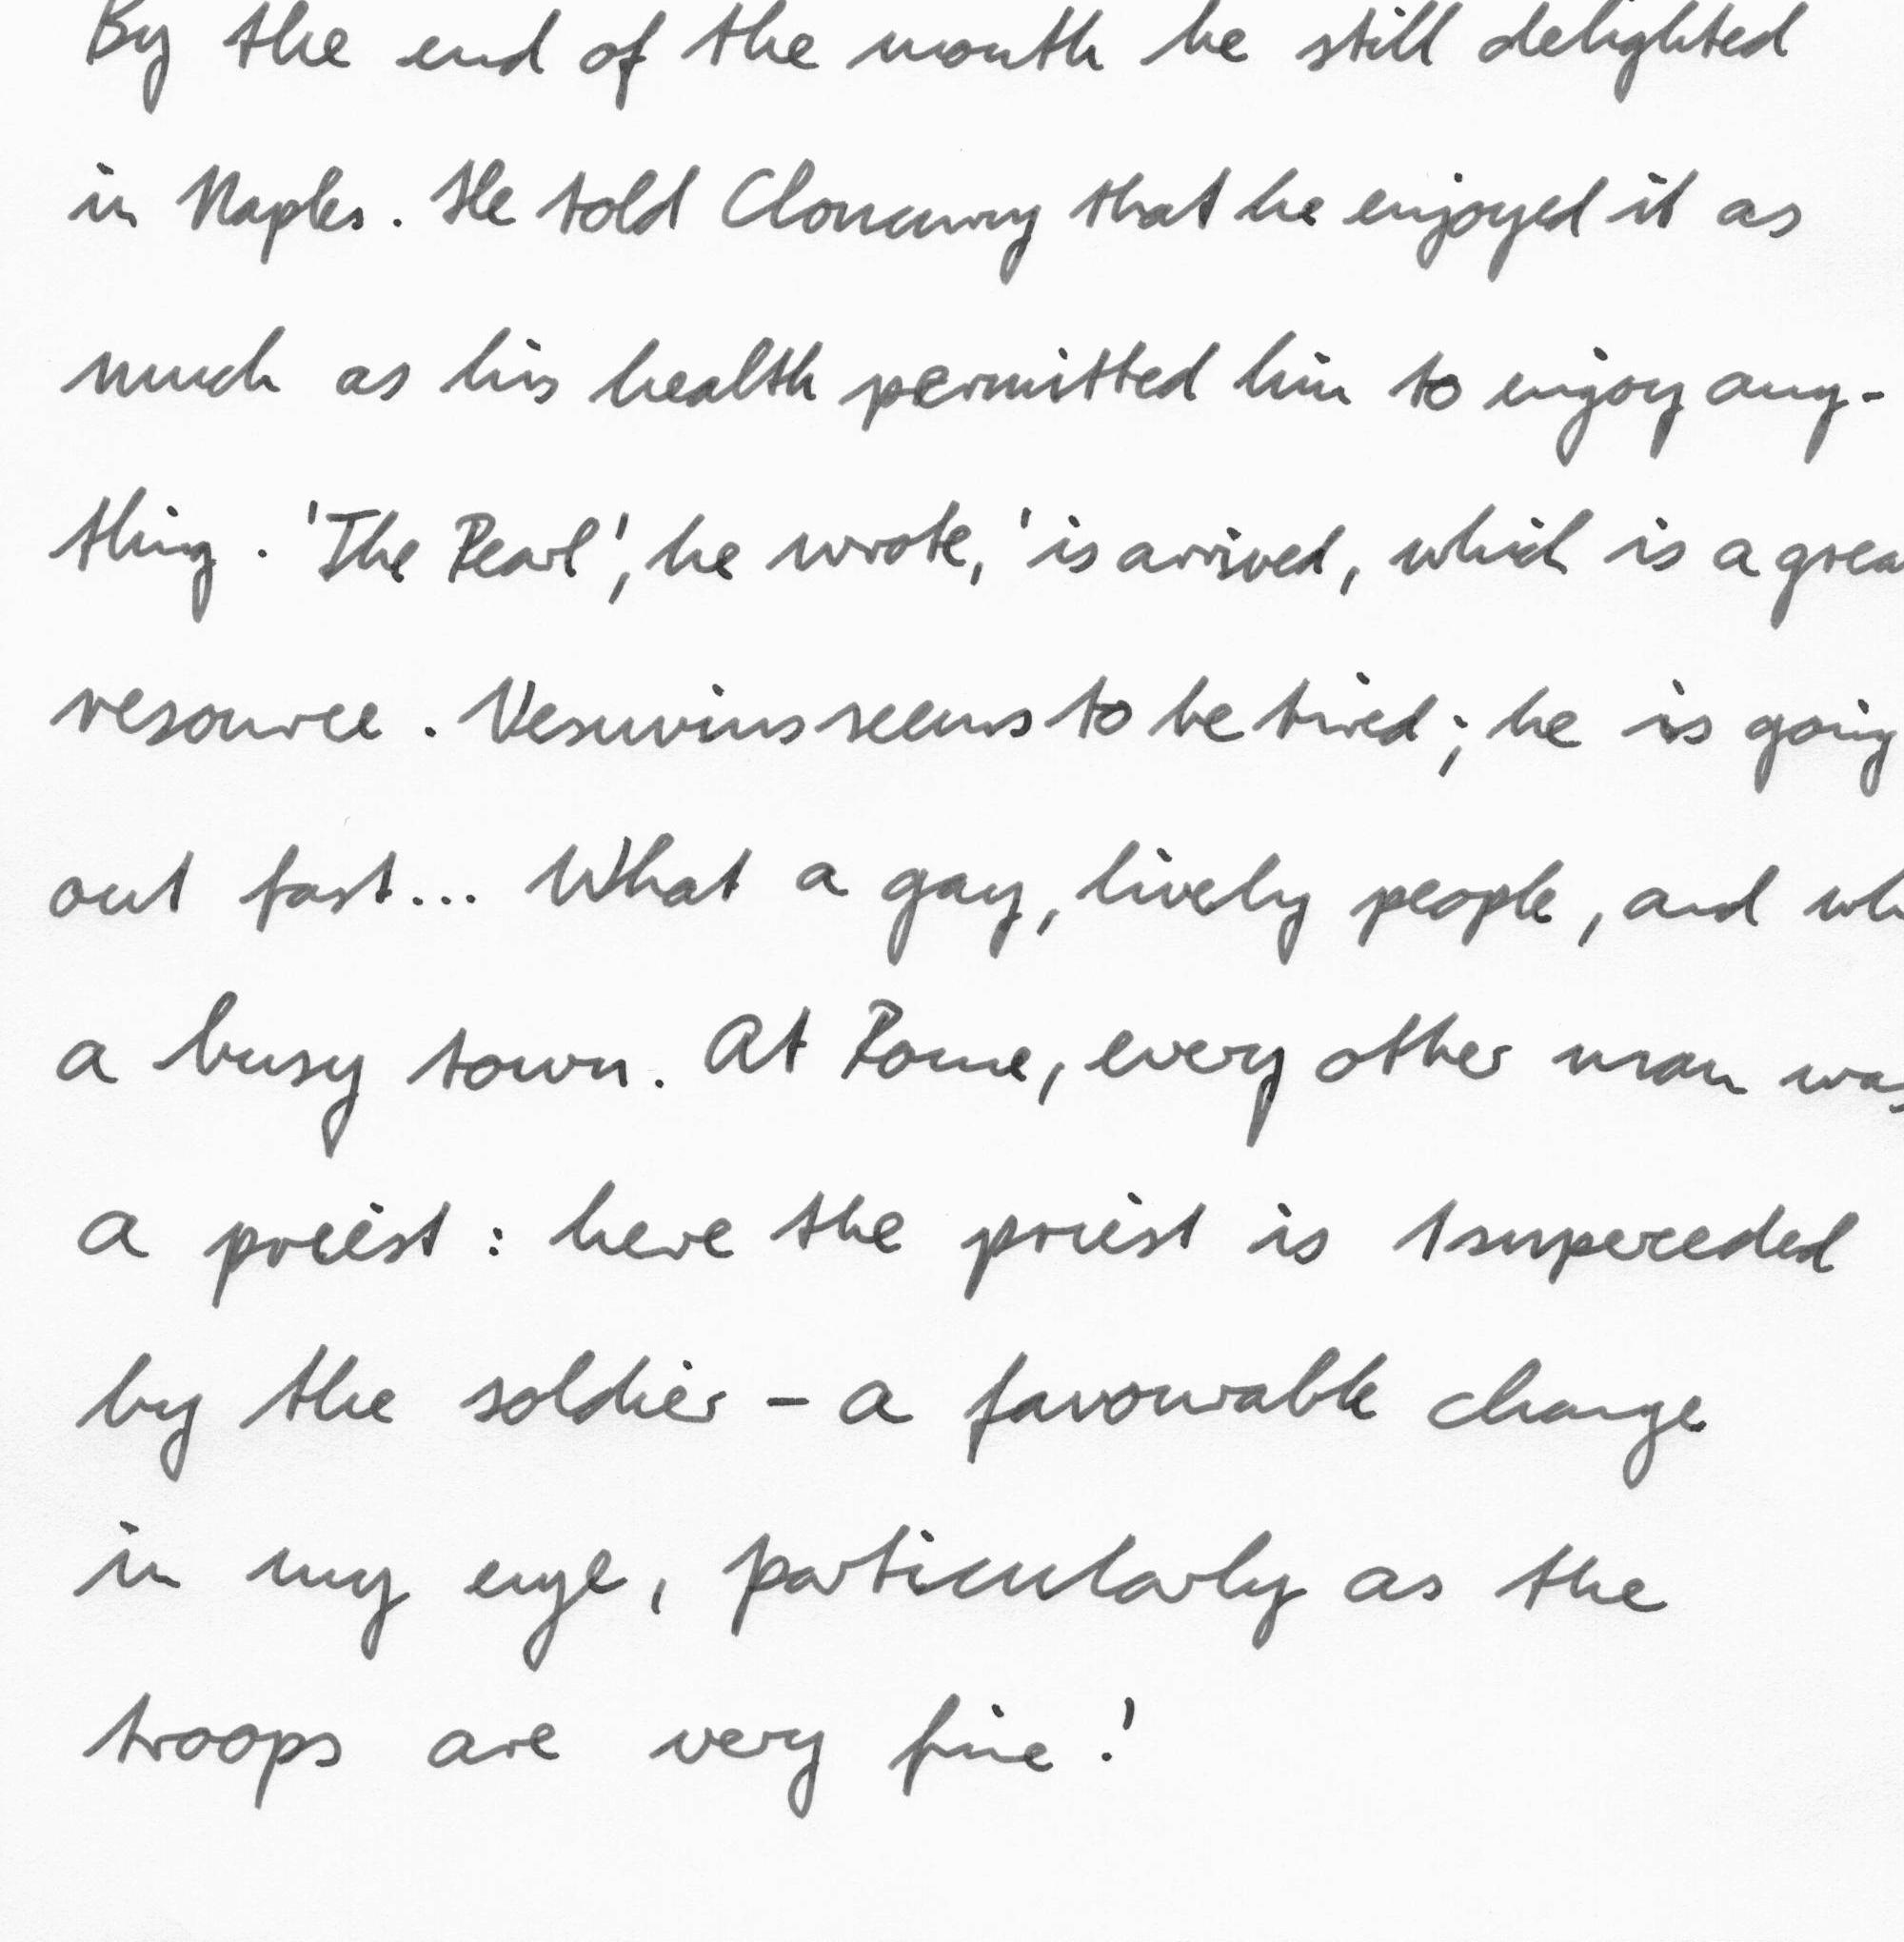 By the end of the month he still delighted
in Naples. He told Cloncurry that he enjoyed it as
much as his health permitted him to enjoy any-
thing. 'The Pearl', he wrote, 'is arrived, which is a grea
resource. Vesuvius seems to be tired; he is going
out fast... What a gay, lively people, and wh
a busy town. At Rome, every other man was
a preist : here the priest is superceded
by the soldier - a favourable change
in my eye, particularly as the
troops are very fine.'